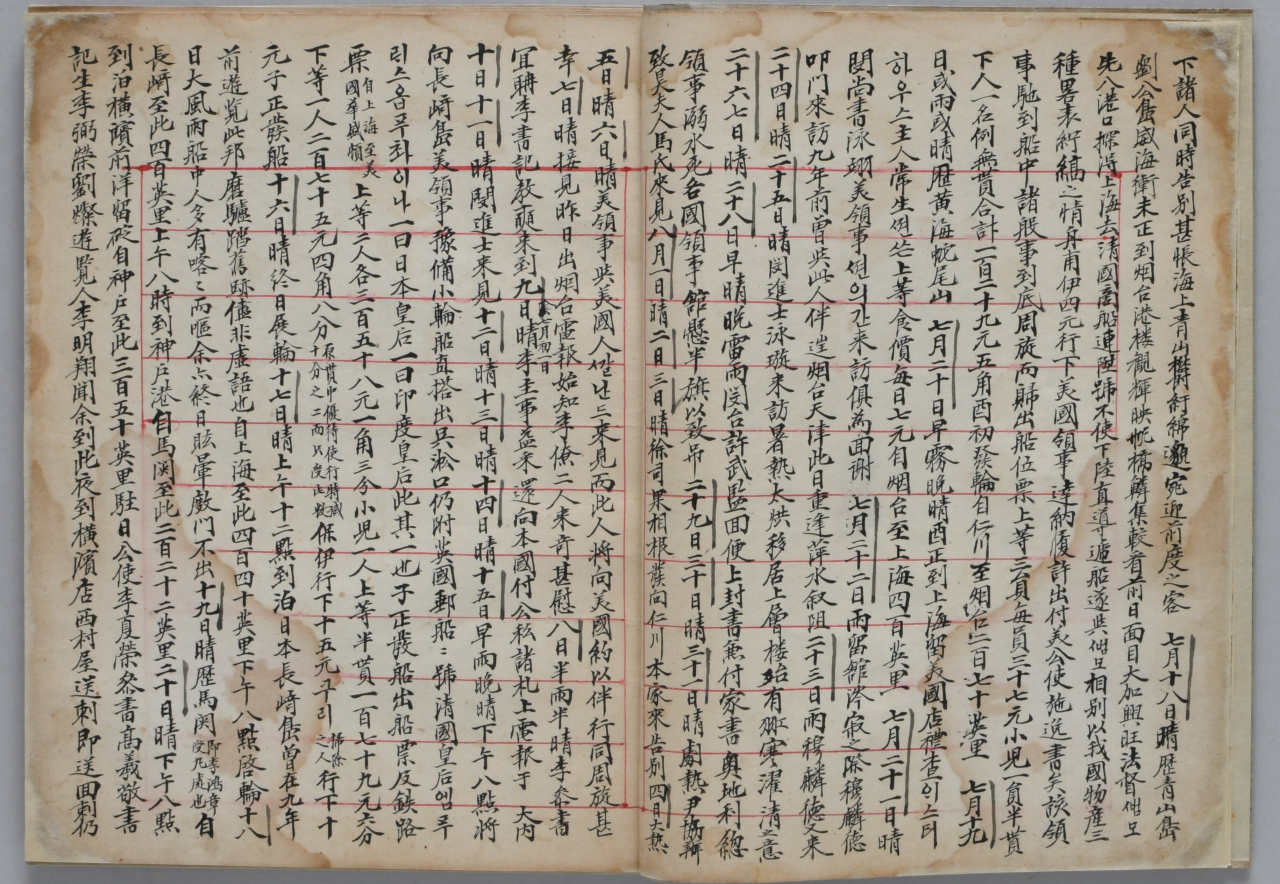 下諸人同時告別甚悵海上青山欝紆綿邈宛迎前度之客 七月十八日晴歷青山島
劉公島威海衛未正到烟台港楼觀輝映帆檣鱗集較看前日面目大加興旺法督뎨모
先入港探得上海去清國商船連陞號不使下陸直導遁船遂與뎨모相別以我國物產三
種畧表紵縞之情身甫伊四元行下美國領事達納履許出付美公使施逸書矣該領
事馳到船中諸般事到底周旋而歸出船位票上等三員每員三十七元小児一負半貰
下人一名例無貰合計一百二十九元五角酉初發輪自仁川至烟台二百七十英里 七月十九
日或雨或晴歷黃海蛇尾山 七月二十日早霧晚晴酉正到上海留美國店禮查이스터
하우스主人常生 上等食價每日七元自烟台至上海四百英里 七月二十一日晴
閔尚書泳翊美領事 來訪俱為面謝 七月二十二日雨留舘涔寂之際穆麟德
叩門來訪九年前曾與此人伴遊烟台天津此日重逢萍水叙阻二十三日雨穆麟德又來
二十四日晴二十五日晴閔進士泳璇來訪暑熱大烘移居上層楼始有栩寒濯清之意
二十六七日晴二十八日早晴晚雷雨閔台許武監面便上封書兼付家書奧地利總
領事溺水死各國領事館懸半旗以致吊二十九日三十日晴三十一日晴劇熱尹協辦
致昊夫人馬氏來見八月一日晴二日三日晴徐司果相根發向仁川本家來告別四日大熱
五日晴六日晴美領事與美國人 來見而此人將向美國約以伴行同周旋甚
幸七日晴接見昨日出烟台電報始知李僚二人来奇甚慰八日半雨半晴李叅書
宜聃李書記教奭来到九日晴李主事益采還向本國付公私諸札上電報于 大內
十日十一日晴閔進士来見十二日晴十三日晴十四日晴十五日早雨晚晴下午八點將
向長崎島美領事豫備小輪船直搭出吳淞口仍附英國郵船〻號清國皇后엠푸
리스옵푸촤이나一曰日本皇后一曰印度皇后此其一也子正發船出船票及鉄路
票自上海至美國華盛頓上等二人各三百五十八元一角三分小児一人上等半貰一百七十九元六分
下等一人二百七十五元四角八分原貰中優待使行特減十分之二而只沒此數保伊行下十五元구리掃除之人行下十
元子正發船十六日晴終日展輪十七日晴上午十二點到泊日本長崎島曾在九年
前遊覽此邦磨驢踏舊跡儘非虛語也自上海至此四百四十英里下午八點啓輪十八
日大風雨船中人多有喀〻而嘔余亦終日眩暈戱門不出十九日晴歷馬関即李鴻章自
長崎至此四百英里上午八時到神戶港自馬関至此二百二十英里二十日晴下午八點
到泊橫濱前洋留碇自神戶至此三百五十英里駐日公使李夏榮叅書高義敬書
記生李弼榮劉燦遊覽人李明翔聞余到此夜到橫濱店西村屋送刺即送回刺仍